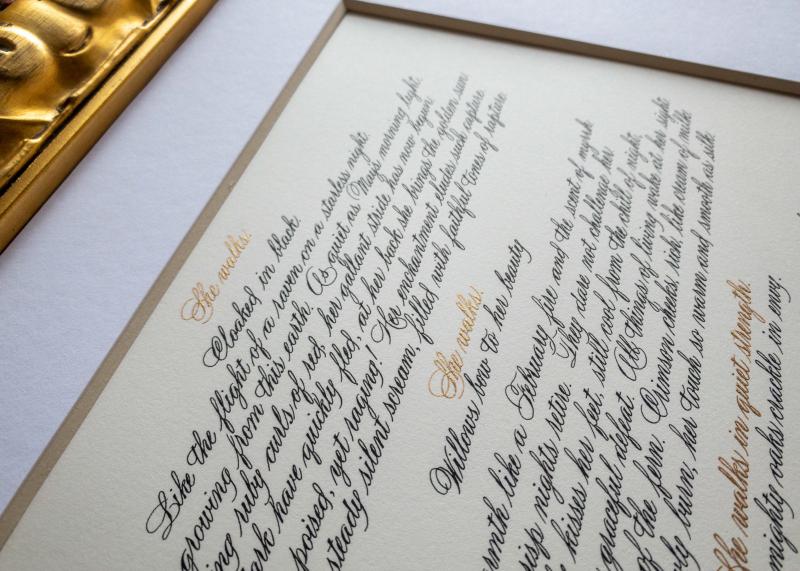 She walks.
Cloaked in black.
Like the flight of a raven on a starless night.
growing from this earth. As quiet as Mays morning light.
ing ruby curls of red, her gallant stride has now begun.
ark have quickly fled, at her back she brings the golden sun.
poised, yet raging! Her enchantment eludes such capture.
steady silent scream, filled with faithful tones of rapture.
She walks.
Willows bow to her beauty
smith like a February fire and the scent of myrrh
isp nights retire. They dare not challenge her
kisses her feet, still cool from the chill of night.
graceful defeat. All things of living walk at her right
of the fern. Crimson cheeks rich, like cream of milk
ly burn, her touch so warm and smooth as silk.
She walks in quiet strength.
mighty oaks crackle in envy.